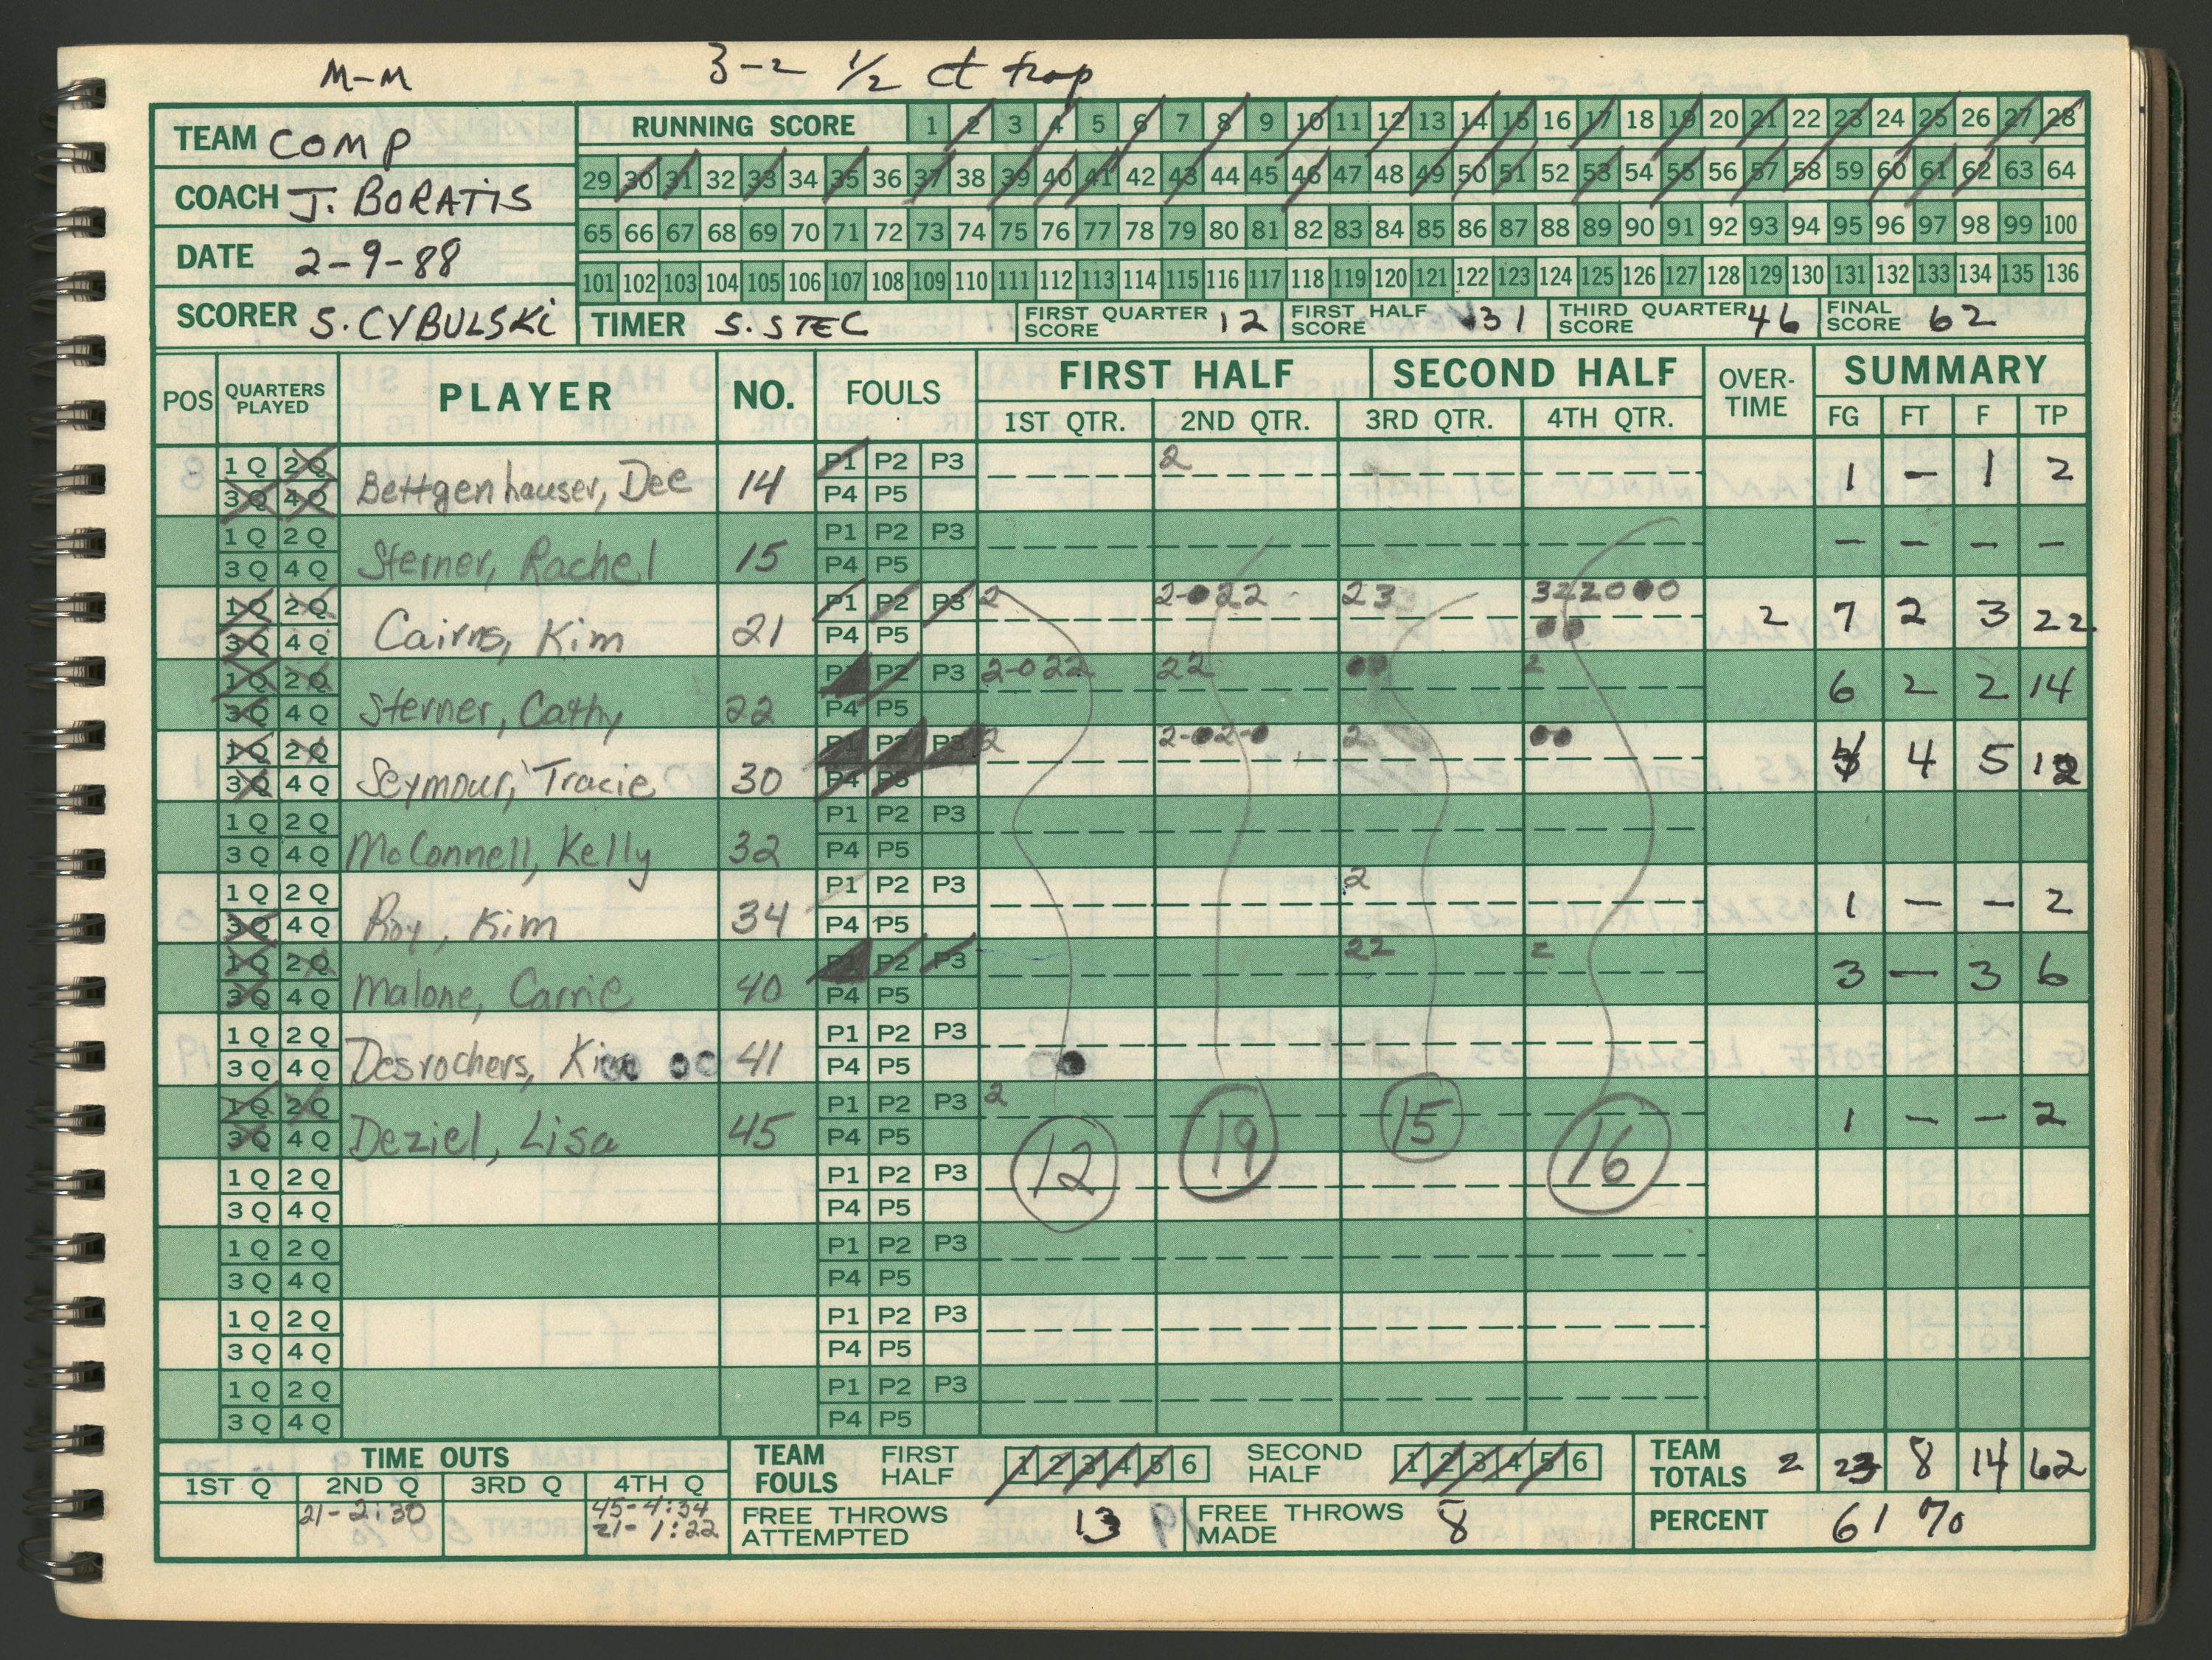 M-M 3-2 1/2 ct trap
TEAM COMP
COACH J. BORATIS
DATE 2-9-88
SCORER S. CYBULSKI
RUNNING SCORE 1 2 3 4 5 6 7 8 9 10 11 12 13 14 15 16 17 18 19 20 21 22 23 24 25 26 27 28
29 30 31 32 33 34 35 36 37 38 39 40 41 42 43 44 45 46 47 48 49 50 51 52 53 54 55 56 57 58 59 60 61 62 63 64
65 66 67 68 69 70 71 72 73 74 75 76 77 78 79 80 81 82 83 84 85 86 87 88 89 90 91 92 93 94 95 96 97 98 99 100
101 102 103 104 105 106 107 108 109 110 111 112 113 114 115 116 117 118 119 120 121 122 123 124 125 126 127 128 129 130 131 132 133 134 135 136
TIMER S. STEC FIRST QUARTER SCORE 12 FIRST HALF SCORE 31 THIRD QUARTER SCORE 46 FINAL SCORE 62
POS QUARTERS PLAYED PLAYER NO. FOULS FIRST HALF SECOND HALF OVER-TIME SUMMARY
1ST QTR. 2ND QTR. 3RD QTR. 4TH QTR. FG FT F TP
1Q 2Q P1 P2 P3 2
3Q 4Q Bettgenhauser, Dee 14 P4 P5 1 - 1 2
1Q 2Q P1 P2 P3
3Q 4Q Sterner, Rachel 15 P4 P5 - - - -
1Q 2Q P1 P2 P3 2 2-022 23 322000
3Q 4Q Cairns, Kim 21 P4 P5 00 2 7 2 3 22
1Q 2Q P1 P2 P3 2-022 22 00 2
3Q 4Q Sterner, Cathy 22 P4 P5 6 2 2 14
1Q 2Q P1 P2 P3 2 2-02-0 2 00
3Q 4Q Seymour, Tracie 30 P4 P5 4 4 5 12
1Q 2Q P1 P2 P3
3Q 4Q McConnell, Kelly 32 P4 P5
1Q 2Q P1 P2 P3 2
3Q 4Q Roy, Kim 34 P4 P5 1 - - 2
1Q 2Q P1 P2 P3 22 2
3Q 4Q Malone, Carrie 40 P4 P5 3 - 3 6
1Q 2Q P1 P2 P3
3Q 4Q Desrochers, Kim 41 P4 P5
1Q 2Q P1 P2 P3 2
3Q 4Q Deziel, Lisa 45 P4 P5 1 - - 2
12 19 15 16
1Q 2Q P1 P2 P3
3Q 4Q P4 P5
1Q 2Q P1 P2 P3
3Q 4Q P4 P5
1Q 2Q P1 P2 P3
3Q 4Q P4 P5
1Q 2Q P1 P2 P3
3Q 4Q P4 P5
TIME OUTS
1ST Q 2ND Q 3RD Q 4TH Q
21-2:30 45-4:34
21-1:22
TEAM FOULS FIRST HALF 1 2 3 4 5 6 SECOND HALF 1 2 3 4 5 6
FREE THROWS ATTEMPTED 13 FREE THROWS MADE 8
TEAM TOTALS 2 23 8 14 62
PERCENT 61 %